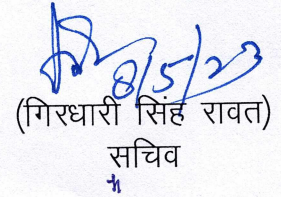 8/5/23
(गिरधारी सिंह रावत)
सचिव